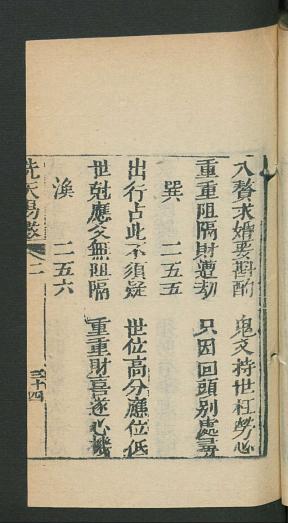 入贅求婚要斟酌　鬼爻持世枉勞心
重重阻隔財遭劫　只因回頭別處尋
巽　二五五
出行占此不須疑　世位高分應位低
世尅應爻無阻隔　重重財喜逐心機
渙　二五六
先天易數　卜二　三十四